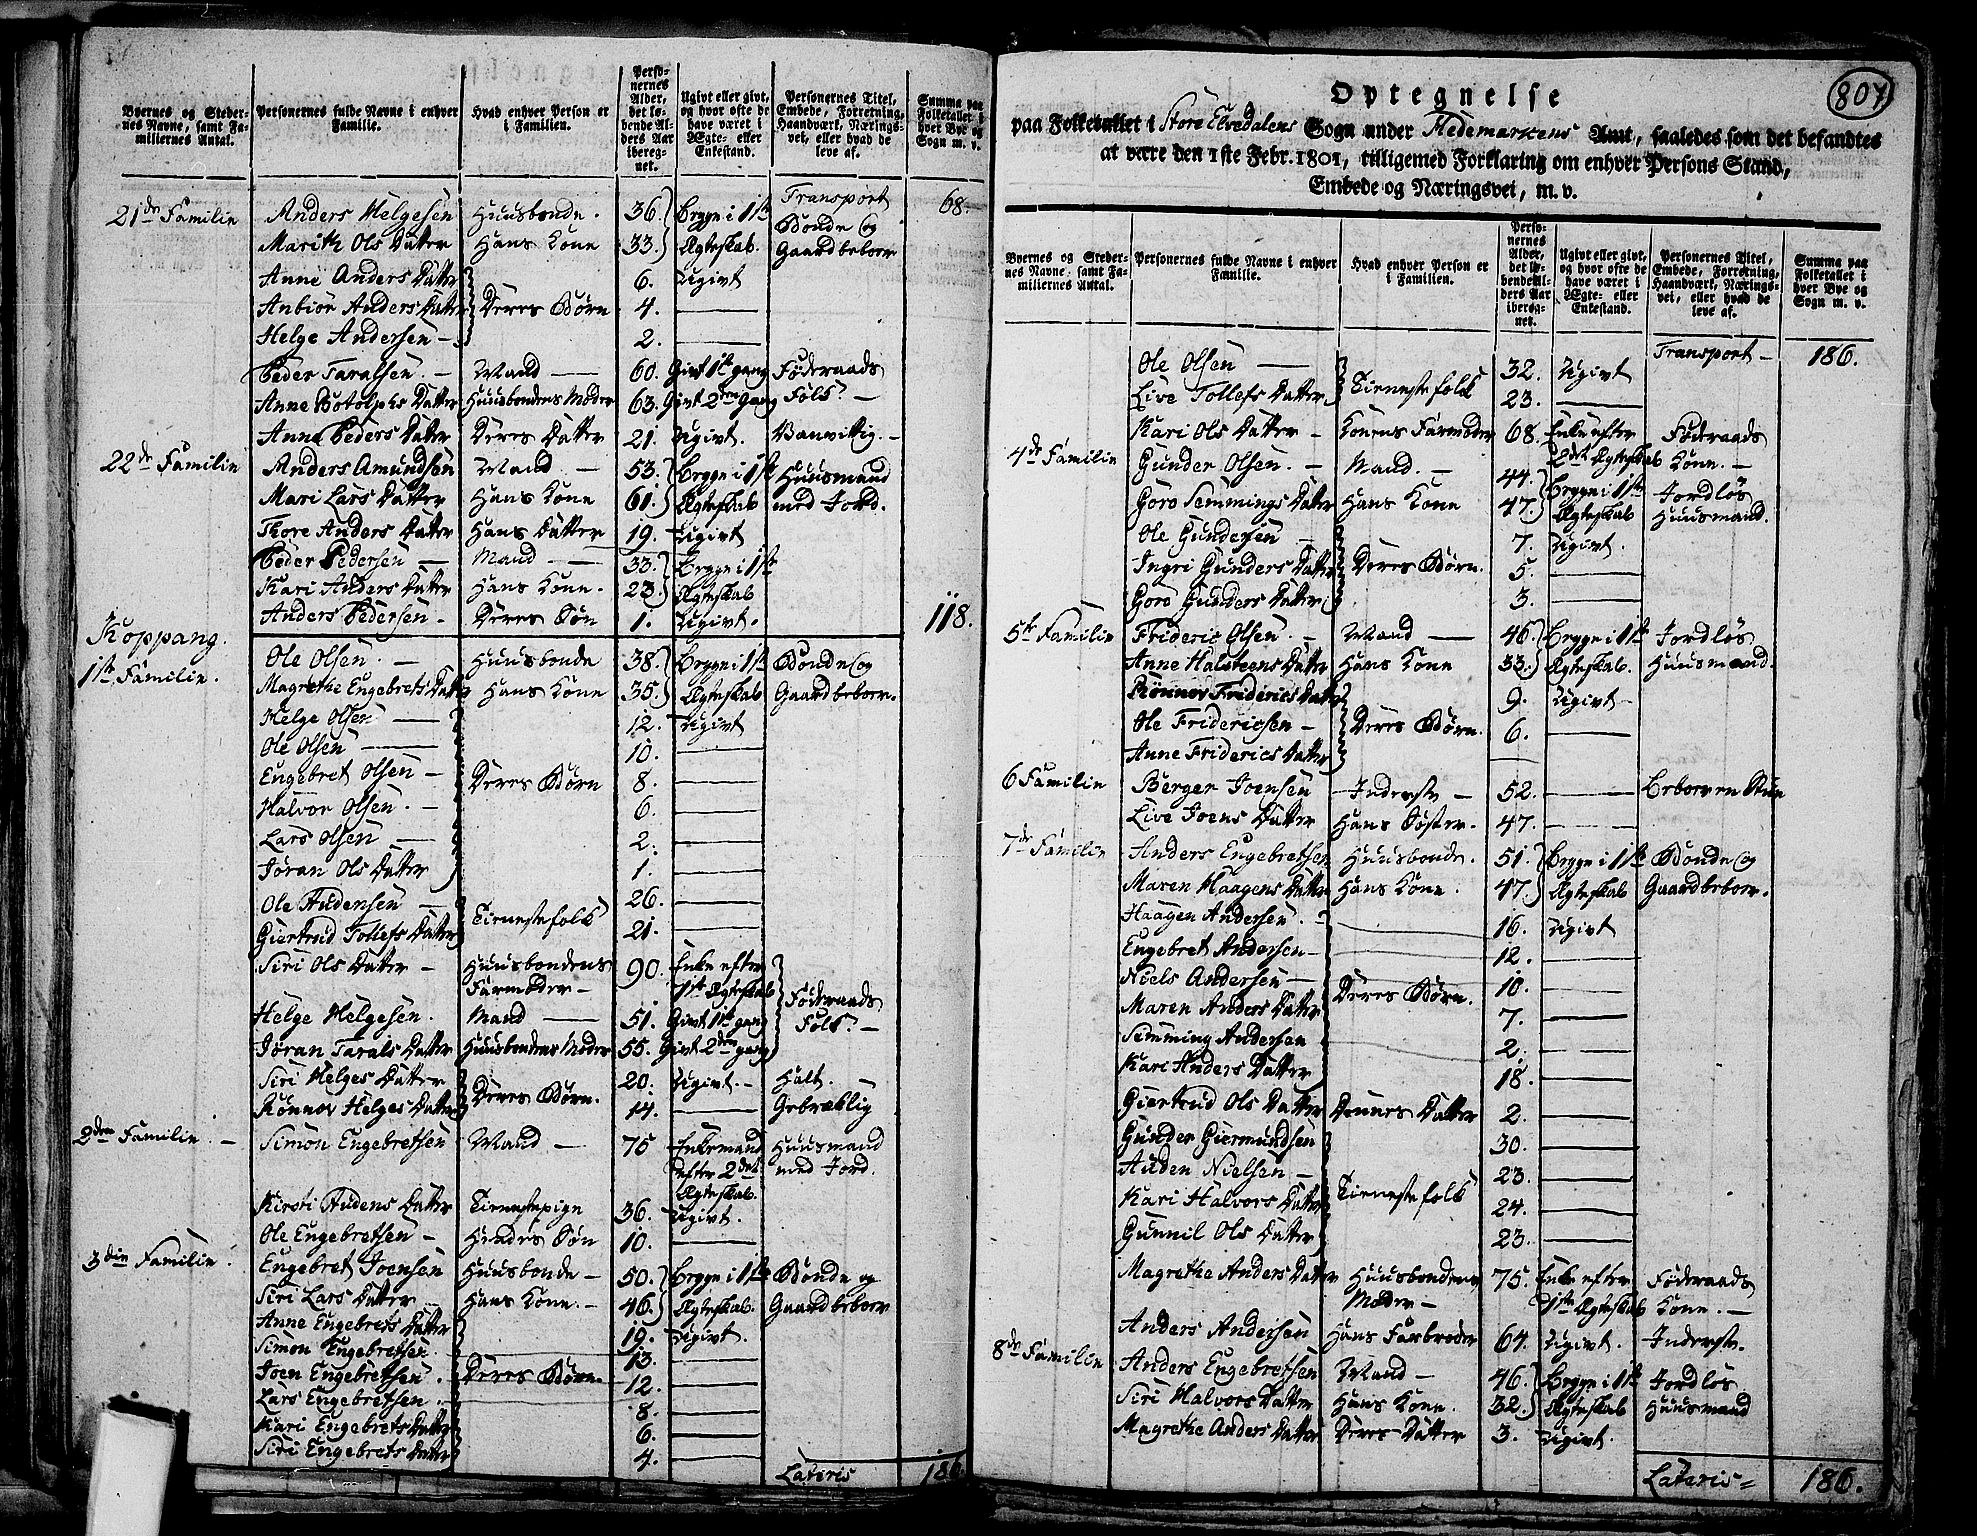 Byernes og Steder-
nes Navne, samt Fa-
miliernes Antal.
Personernes fulde Navne i enhver
Familie.
Hvad enhver Person er
i Familien.
Perso-
nernes
Alder,
det lø-
bende Al-
ders Aar
ibereg-
net.
Ugivt eller givt,
og hvor ofte de
have været i
Ægte- eller
Enkestand.
Personernes Titel,
Embede, Forretning,
Haandværk, Nærings-
vei, eller hvad de
leve af.
Summa paa
Folketallet i
hver Bye og
Sogn m. v.
Transport 68.
21de Familie Anders Helgesen Huusbonde. 36. Begge i 1ste Bonde og
Marith Ols Datter Hans Kone 33. Ægteskab. Gaardbeboer
Anne Anders Datter 6. Ugivt
Anbiør Anders Datter Deres Børn 4.
Helge Andersen 2.
Peder Taralsen. Mand 60. Givt 1ste gang Føderaads
Anne Botolphs Datter Huusbondens Moder 63. Givt 2den Gang Folk
Anne Peders Datter Deres Datter 21. Ugivt. Vanvittig.
22de Familie Anders Amundsen Mand 53. Begge i 1ste Huusmand
Mari Lars Datter Hans Kone 61. Ægteskab med Jord.
Thore Anders Datter Hans Datter 19. Ugivt
Peder Pedersen Mand 33. Begge i 1ste
Kari Anders Datter Hans Kone. 23. Ægteskab
Anders Pedersen Deres Søn 1. Ugivt. 118.
Koppang.
1ste Familie. Ole Olsen. Huusbonde 38. Begge i 1ste Bonde og
Magrethe Engebrets Datter Hans Kone 35. Ægteskab Gaardbeboer.
Helge Olsen 12. Ugivt
Ole Olsen 10.
Engebret Olsen Deres Børn 8.
Halvor Olsen. 6.
Lars Olsen 2.
Jøran Ols Datter 1.
Ole Audensen Tienestefolk 26.
Giertrud Tollefs Datter 21.
Siri Ols Datter Huusbondens 90. Enke efter
Farmoder 1ste Ægteskab Føderaads
Helge Helgesen. Mand 51. Givt 1ste gang Folk
Jøran Tarals Datter Huusbondens Moder 55. Givt 2den gang
Siri Helges Datter Deres Børn. 20. Ugivt. Halt.
Rønnov Helges Datter 14. Gebræklig
2den Familie. Simon Engebretsen Mand 75 Enkemand Huusmand
efter 2det med Jord.
Ægteskab.
Kirsti Audens Datter Tienestepige 36. Ugivt.
Ole Engebretsen Hendes Søn 10.
3die Familie. Engebret Joensen Huusbonde 50. Begge i 1ste Bonde og
Siri Lars Datter Hans Kone. 46. Ægteskab. Gaardbeboer
Anne Engebrets Datter 19. Ugivt.
Simon Engebretsen. 13.
Joen Engebretsen. Deres Børn 12.
Lars Engebretsen. 8.
Kari Engebrets Datter 6.
Siri Engebrets Datter 4.
Lateris 186.
807
Optegnelse
paa Folketallet i Store Elvedalens Sogn under Hedemarkens Amt, saaledes som det befandtes
at være den 1ste Febr. 1801, tilligemed Forklaring om enhver Persons Stand,
Embede og Næringsvei, m. v.
Byernes og Steder-
nes Navne, samt Fa-
miliernes Antal.
Personernes fulde Navne i enhver
Familie.
Hvad enhver Person er
i Familien.
Perso-
nernes
Alder,
det lø-
bende Al-
ders Aar
ibereg-
net.
Ugivt eller givt,
og hvor ofte de
have været i
Ægte- eller
Enkestand.
Personernes Titel,
Embede, Forretning,
Haandværk, Nærings-
vei, eller hvad de
leve af.
Summa paa
Folketallet i
hver Bye og
Sogn m. v.
Transport 186.
Ole Olsen Tienestefolk 32. Ugivt
Live Tollefs Datter 23.
Kari Ols Datter Konens Farmoder 68. Enke efter Føderaads
2det Ægteskab Kone.
4de Familie Gunder Olsen. Mand. 44. Begge i 1ste Jordløs
Goro Semmings Datter Hans Kone 47. Ægteskab Huusmand.
Ole Gundersen 7. Ugivt.
Ingri Gunders Datter Deres Børn. 5.
Goro Gunders Datter 3.
5te Familie Frideric Olsen. Mand 46. Begge i 1ste Jordløs
Anne Halsteens Datter Hans Kone 33. Ægteskab. Huusmand.
Rønnov Friderics Datter 9. Ugivt
Ole Fridericsen Deres Børn. 6.
Anne Friderics Datter
6 Familie Berger Joensen Inderste 52.
Live Joens Datter Hans Søster. 47.
7de Familie Anders Engebretsen Huusbonde. 51. Begge i 1ste Bonde og
Maren Haagens Datter Hans Kone. 47. Ægteskab Gaardbeboer.
Haagen Andersen. 16. Ugivt
Engebret Andersen 12.
Niels Andersen Deres Børn. 10.
Maren Anders Datter 7.
Semming Andersen 2.
Kari Anders Datter 18.
Giertrud Ols Datter Dennes Datter 2.
Gunder Giermundsen 30.
Auden Nielsen Tienestefolk 23.
Kari Halvors Datter 24.
Gunnil Ols Datter 23.
Magrethe Anders Datter Huusbondens 75. Enke efter Føderaads
Moder 1ste Ægteskab Kone.
Anders Andersen Hans Farbroder 64. Ugivt. Inderste.
8de Familie Anders Engebretsen Mand 46. Begge i 1ste Jordløs
Siri Halvors Datter Hans Kone. 32. Ægteskab Huusmand
Magrethe Anders Datter Deres Datter 3. Ugivt.
Lateris 186.